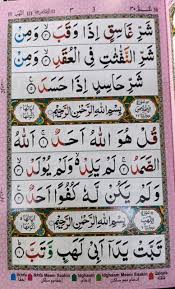 شَرِّ غَاسِقٍ اِذَا وَقَبَ ۙ وَمِنْ
شَرِّ النَّفّٰثٰتِ فِی الْعُقَدِ ۙ وَمِنْ
شَرِّ حَاسِدٍ اِذَا حَسَدَ
بِسْمِ اللّٰهِ الرَّحْمٰنِ الرَّحِیْمِ
قُلْ هُوَ اللّٰهُ اَحَدٌ ۚ اَللّٰهُ
الصَّمَدُ ۚ لَمْ یَلِدْ ۙ وَلَمْ یُوْلَدْ ۙ
وَلَمْ یَكُنْ لَّهٗ كُفُوًا اَحَدٌ
بِسْمِ اللّٰهِ الرَّحْمٰنِ الرَّحِیْمِ
تَبَّتْ یَدَاۤ اَبِیْ لَهَبٍ وَّتَبَّ
Idghaam Meem Saakin